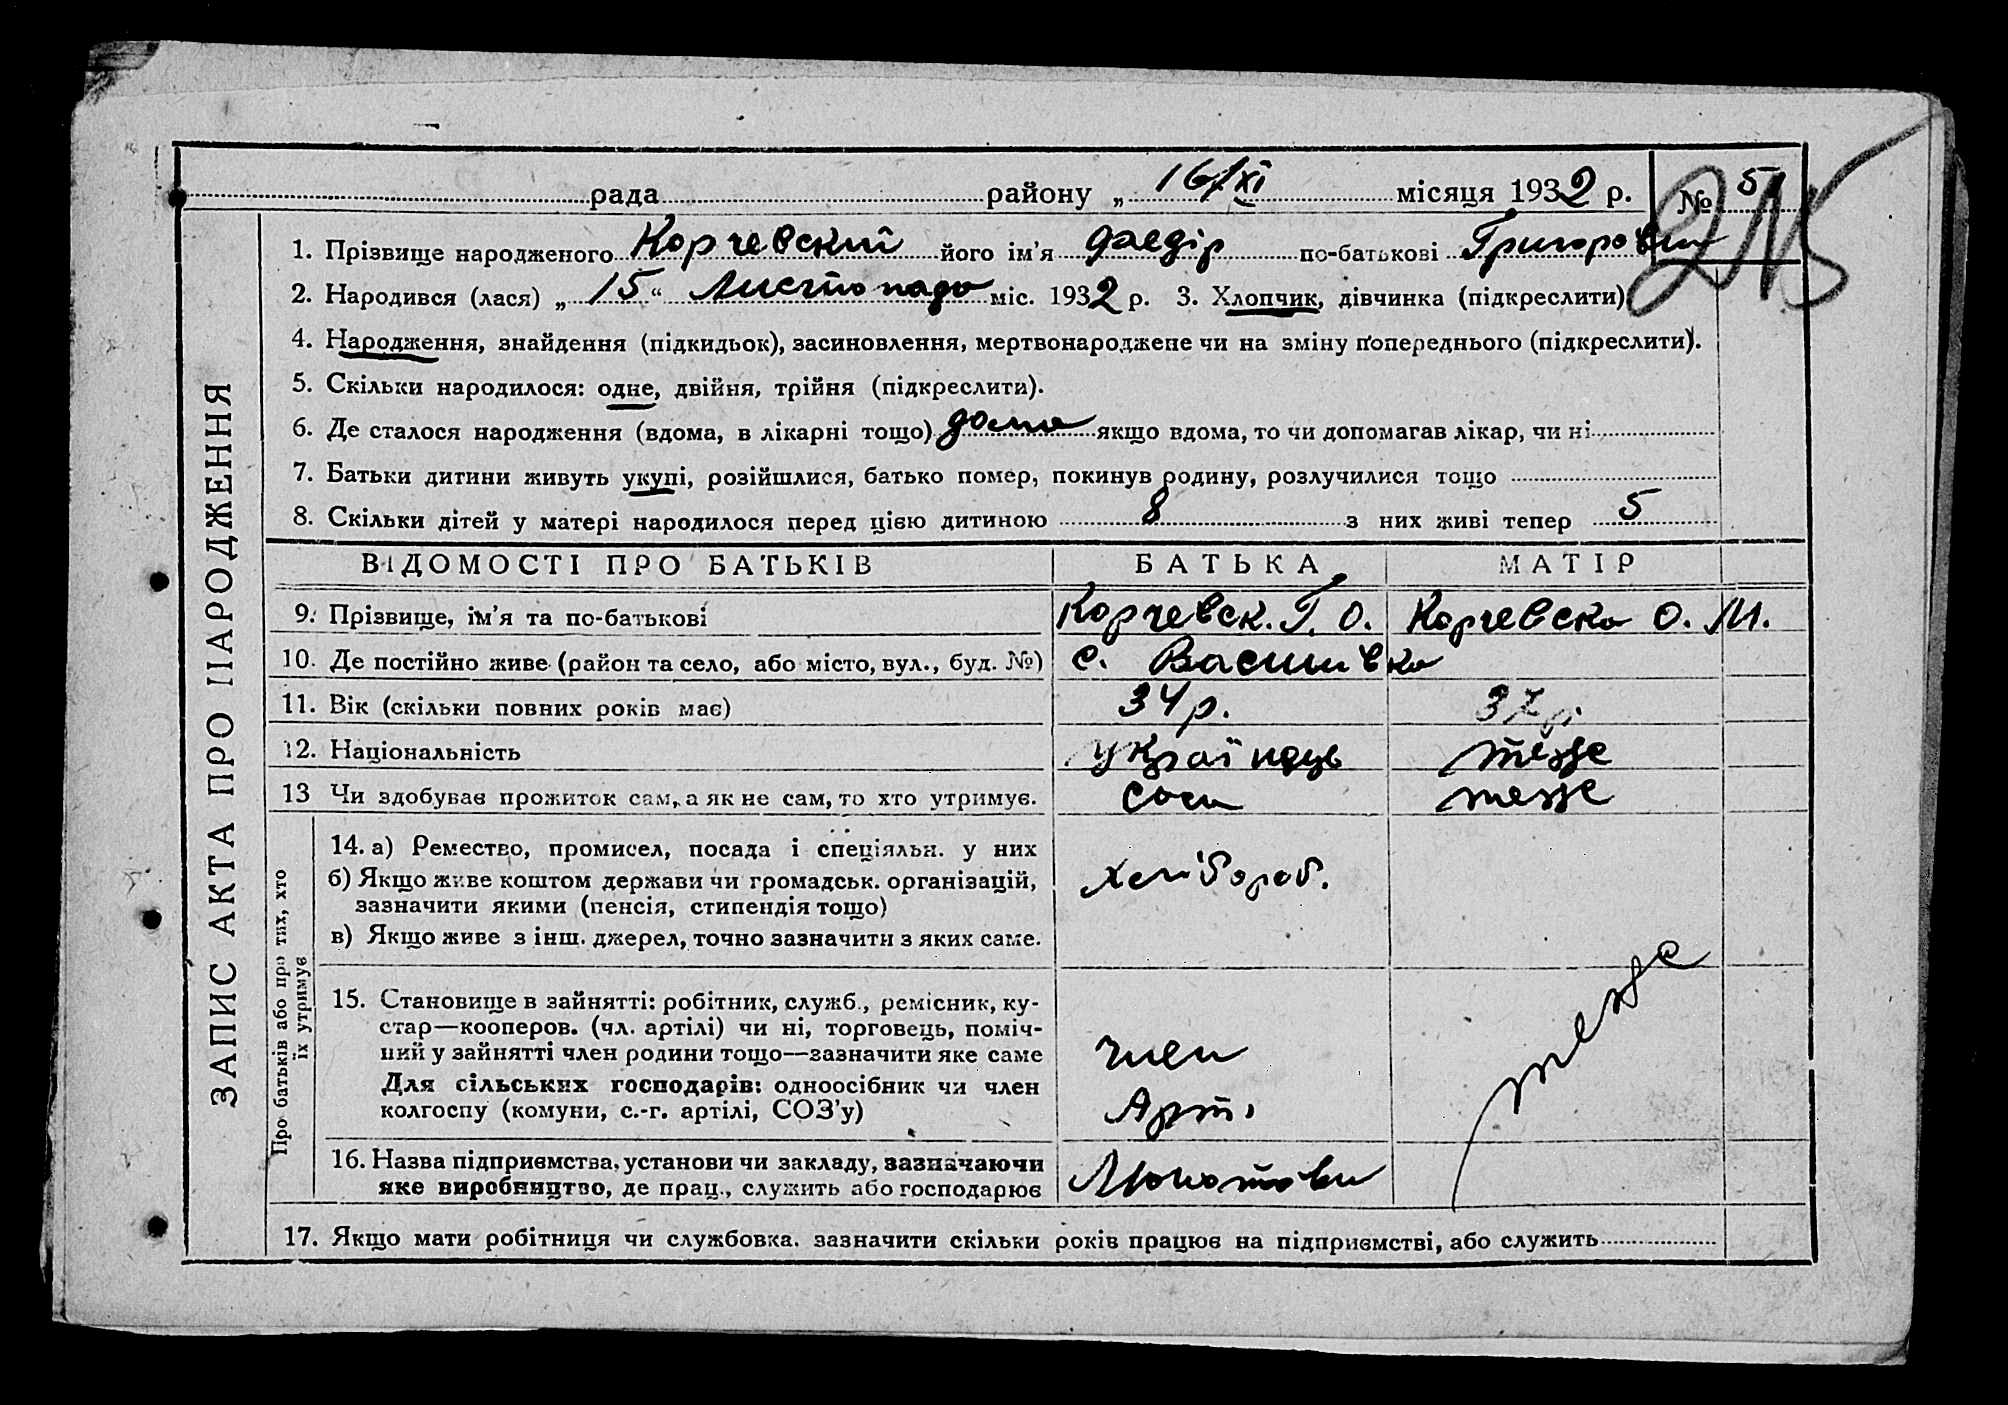 рада района „ 16/XI місяця 1932 р. № 5
215
ЗАПИС АКТА ПРО НАРОДЖЕННЯ
1. Прізвище народженого Корчевский його ім'я Фаедір по-батькові Григорович
2. Народився (лася) „ 15 “ Листопада міс. 1932 р. 3. Хлопчик, дівчинка (підкреслити)
4. Народження, знайдення (підкидьок), засиновлення, мертвонароджене чи на зміну попереднього (підкреслити).
5. Скільки народилося: одне, двійня, трійня (підкреслити).
6. Де сталося народження (вдома, в лікарні тощо) дома якщо вдома, то чи допомагав лікар, чи ні
7. Батьки дитини живуть укупі, розійшлися, батько помер, покинув родину, розлучилися тощо
8. Скільки дітей у матері народилося перед цією дитиною 8 з них живі тепер 5
ВІДОМОСТІ ПРО БАТЬКІВ БАТЬКА МАТІР
9. Прізвище, ім'я та по-батькові Корчевск. Г. О. Корчевска О. М.
10. Де постійно живе (район та село, або місто, вул., буд. №) с. Василівка
11. Вік (скільки повних років має) 34 р. 37 р.
12. Національність українець теж
13 Чи здобуває прожиток сам, а як не сам, то хто утримує. Сам теж
Про батьків або про тих, хто
їх утримує
14. а) Ремество, промисел, посада і спеціяльн. у них
б) Якщо живе коштом держави чи громадськ. організацій, хлібороб.
зазначити якими (пенсія, стипендія тощо)
в) Якщо живе з інш. джерел, точно зазначити з яких саме.
15. Становище в зайнятті: робітник, служб., ремісник, ку-
стар—кооперов. (чл. артілі) чи ні, торговець, поміч-
ний у зайнятті член родини тощо—зазначити яке саме член теж
Для сільських господарів: одноосібник чи член
колгоспу (комуни, с.-г. артілі, СОЗ'у) Арт.
16. Назва підприємства, установи чи закладу, зазначаючи
яке виробництво, де прац., служить або господарює
17. Якщо мати робітниця чи службовка, зазначити скільки років працює на підприємстві, або служить